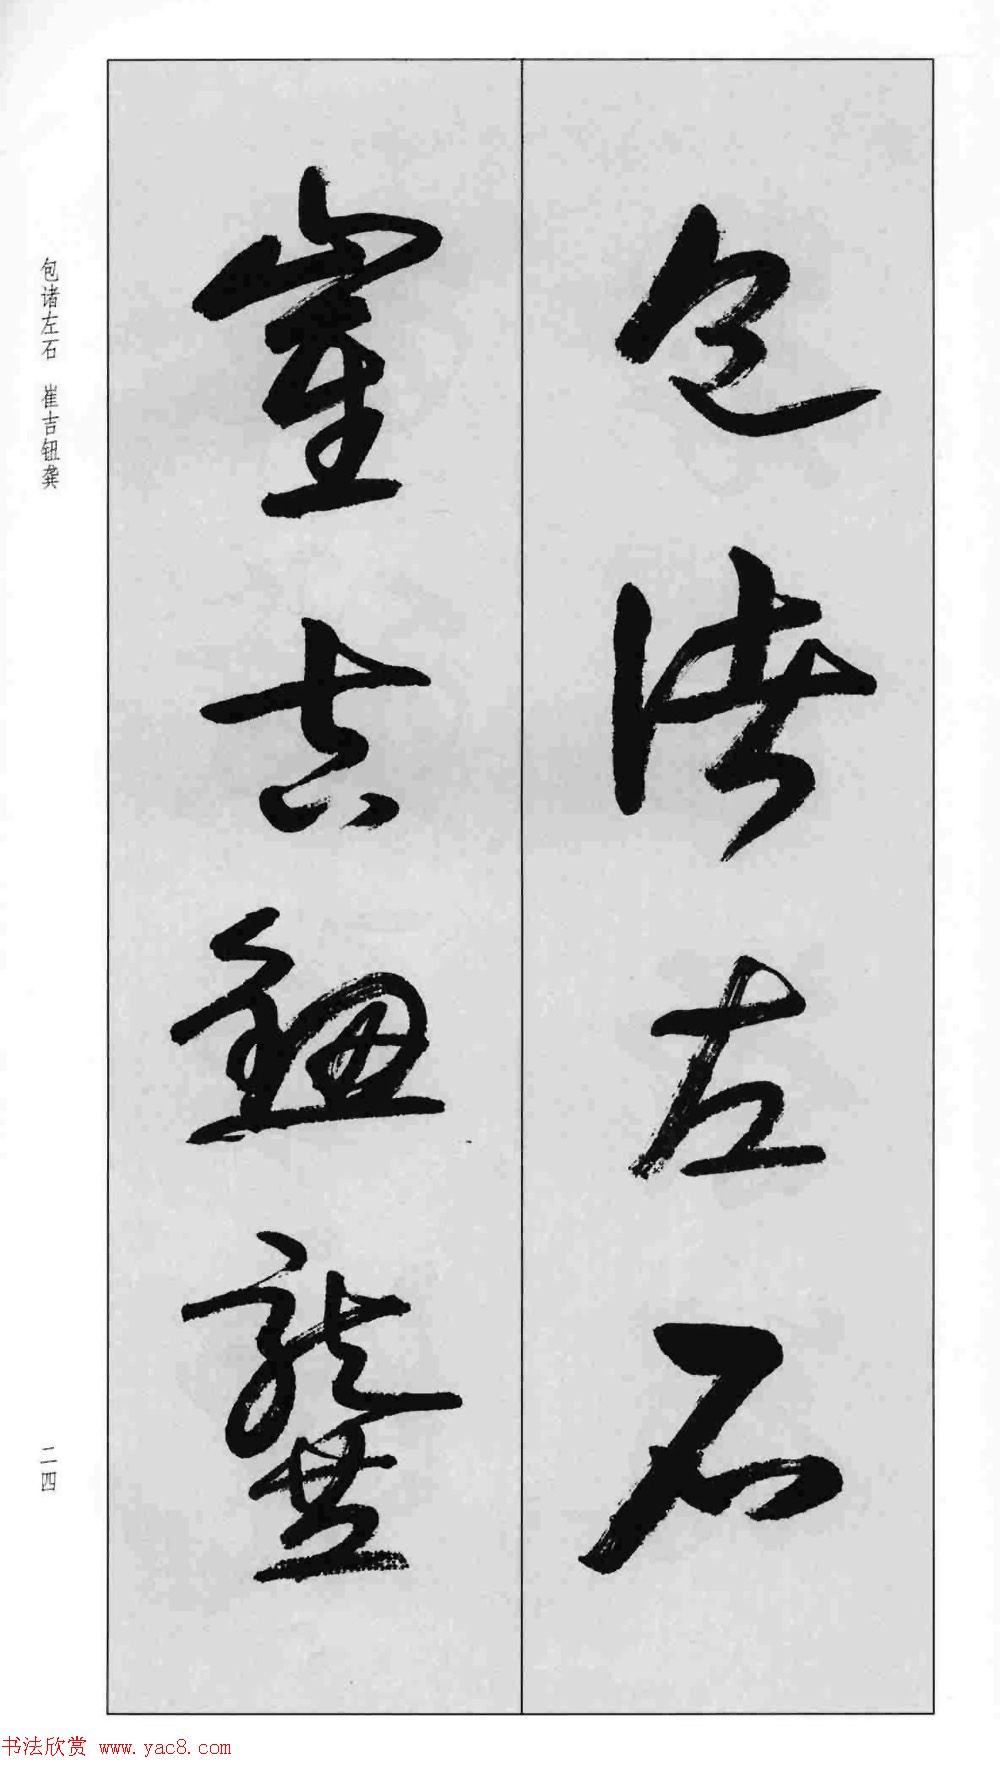 包諸左石
崔吉鈕龔
包诸左石 崔吉钮龚
二四
书法欣赏 www.yac8.com